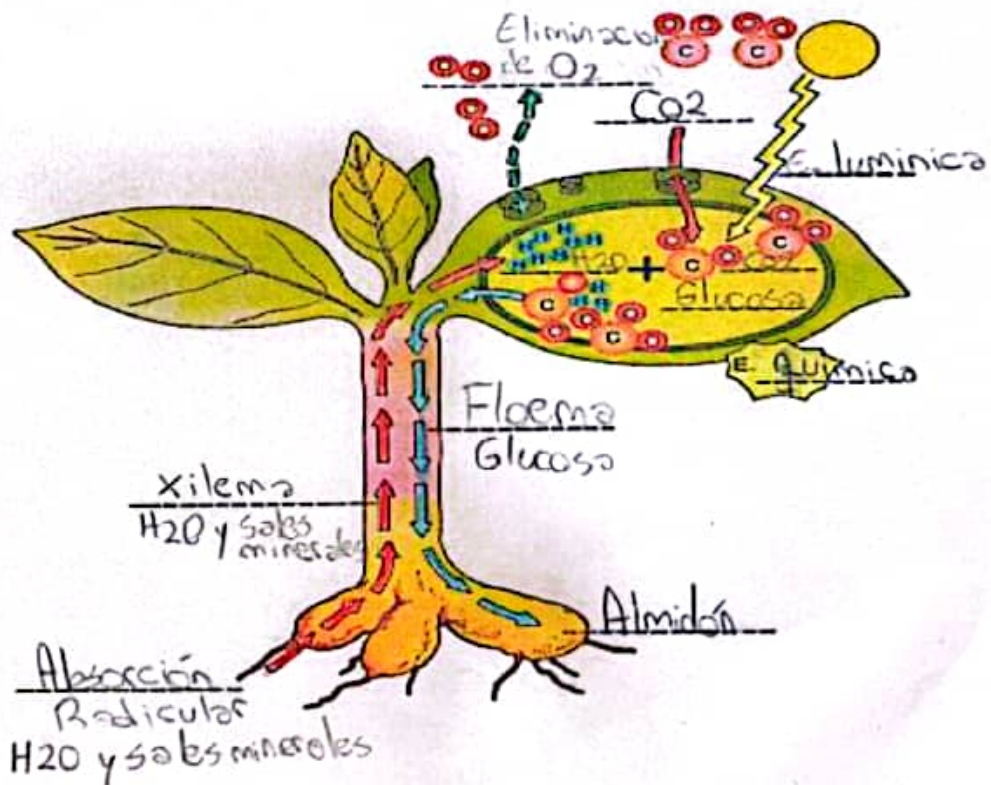 Eliminacion
de O2
CO2
E. luminica
H2O + CO2
Glucosa
E. Quimica
Floema
Glucosa
Xilema
H2O y sales
minerales
Almidón
Absorción
Radicular
H2O y sales minerales
C
C
C
C
C
C